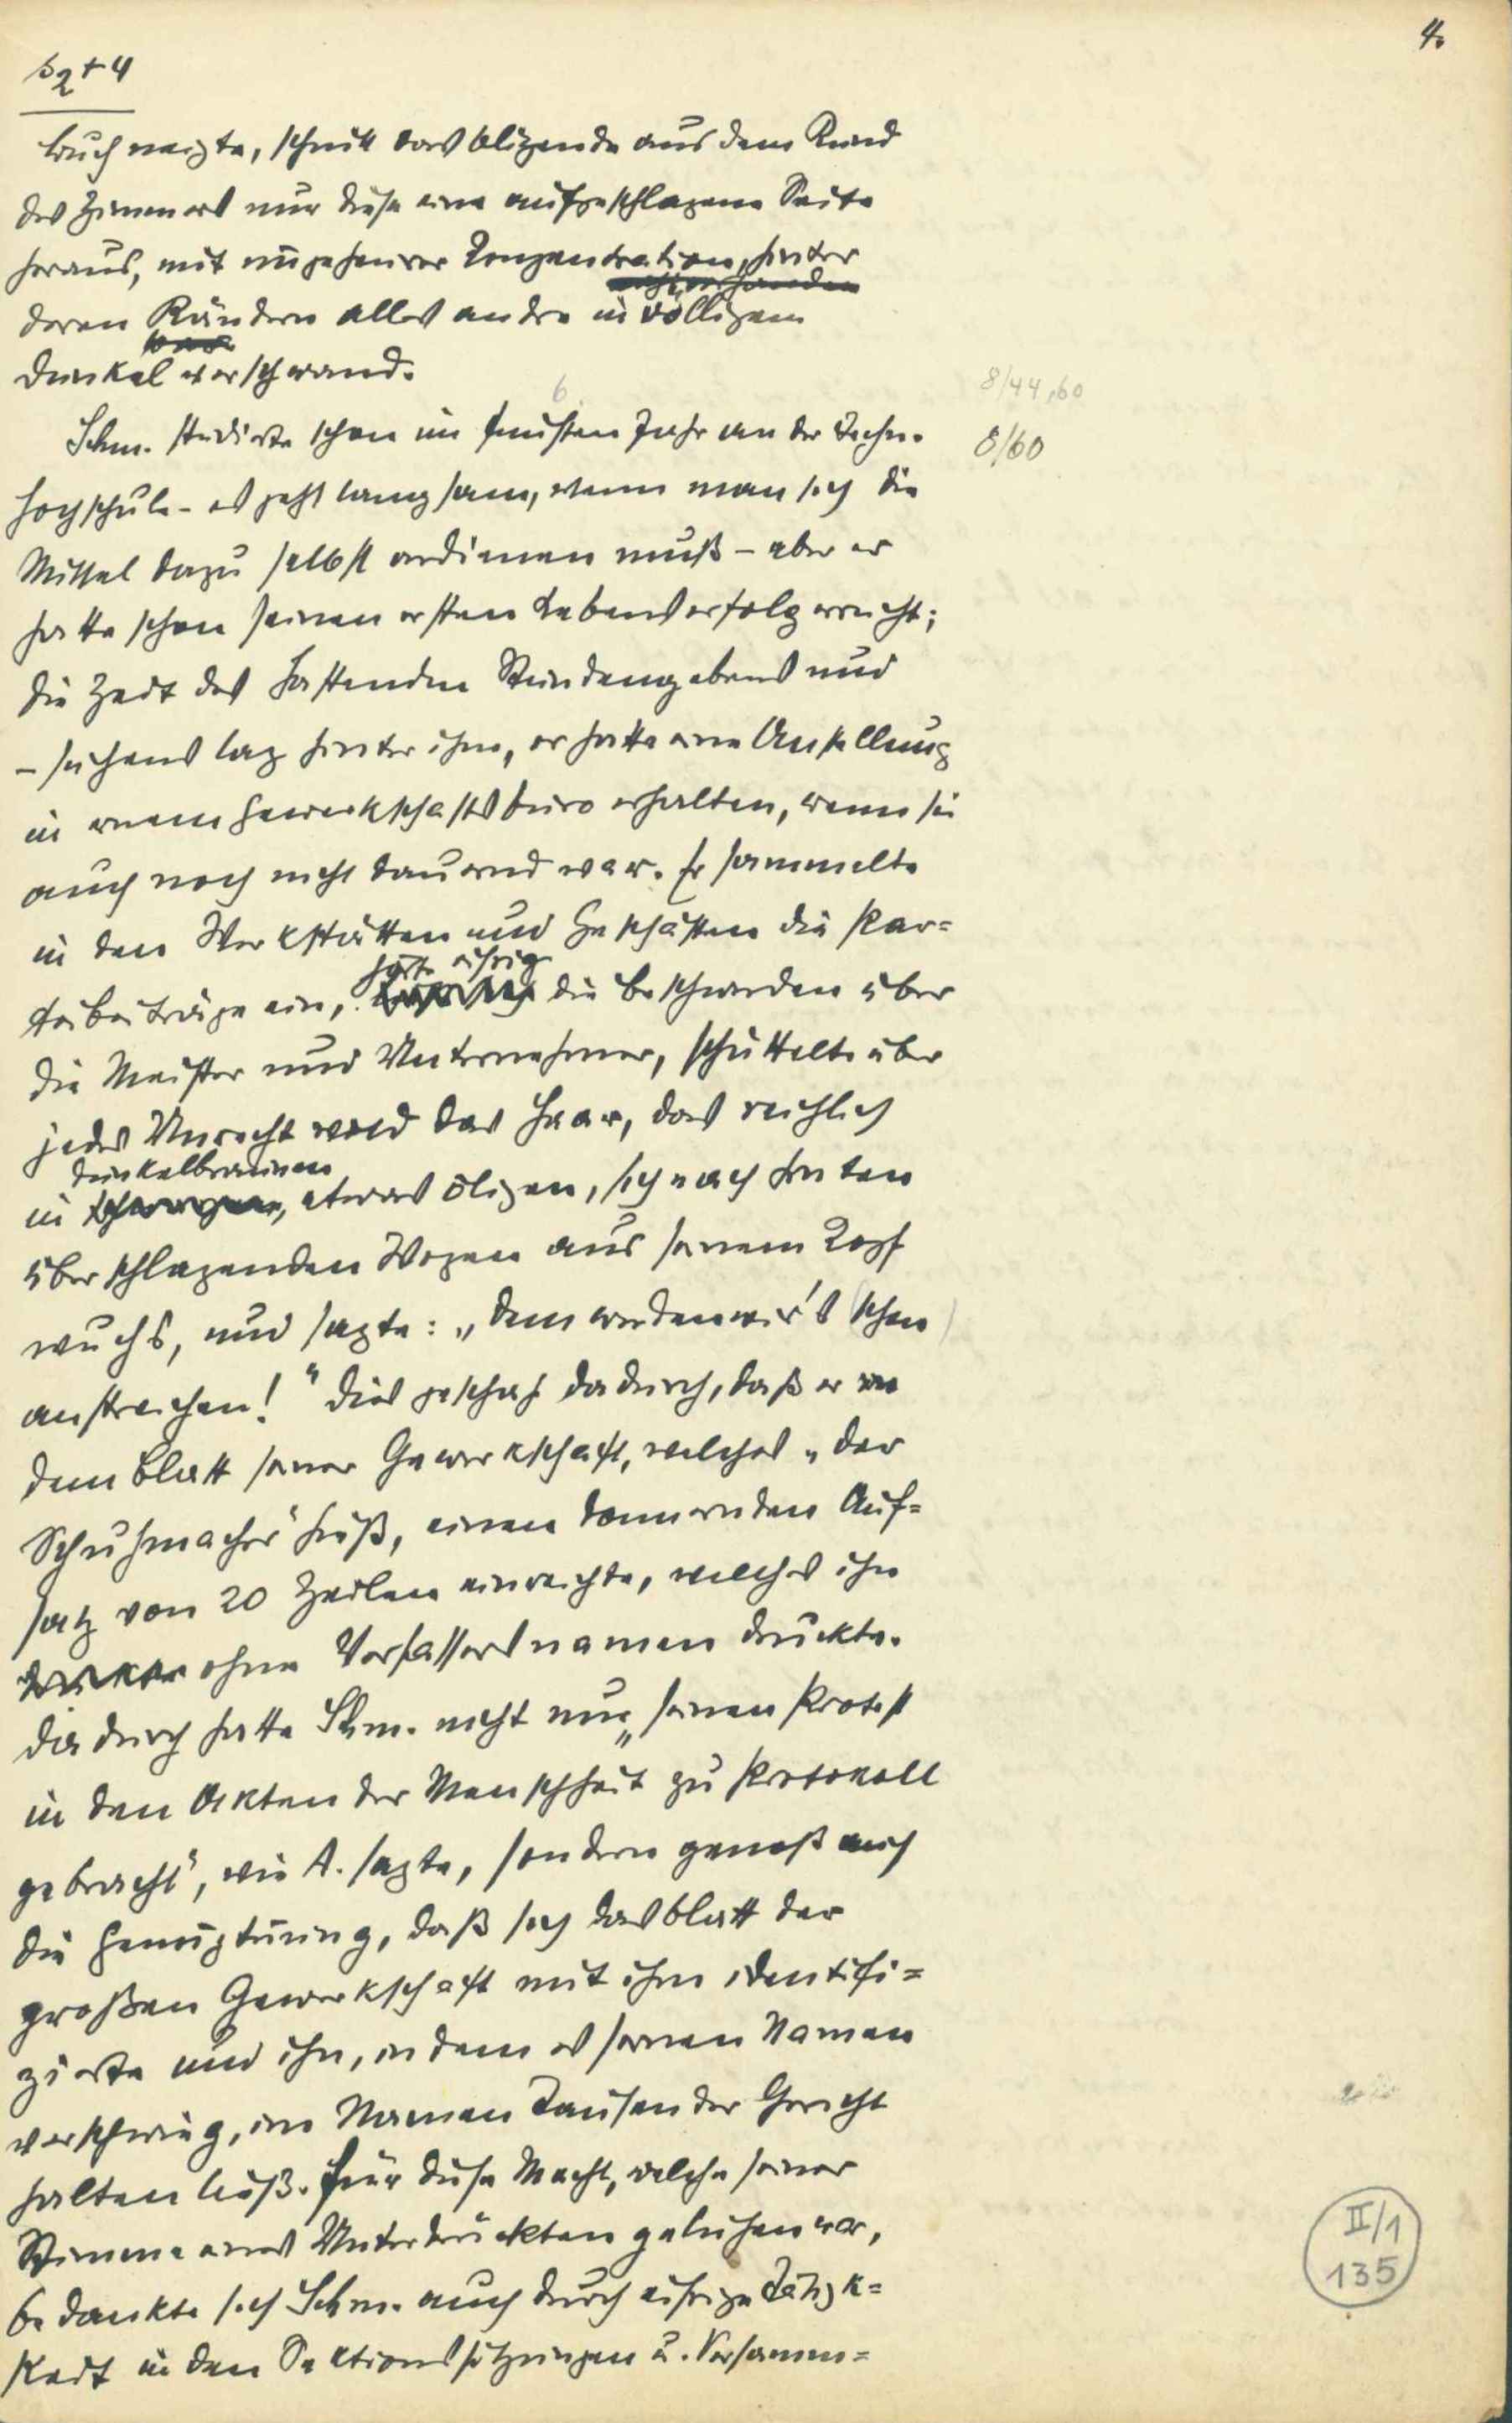 4.
s2+4
buch neigte, schnitt das blitzende aus dem Rund
des Zimmers nur diese eine aufgeschlagene Seite
heraus, mit ungeheurer Konzentration, hinter
deren Rändern alles andre in völligem
Dunkel verschwand.
8/44,60
6
Schm. studierte schon im fünften Jahr an der Techn.
8/60
Hochschule – es geht langsam, wenn man sich die
Mittel dazu selbst verdienen muß – aber er
hatte schon seinen ersten Lebenserfolg erreicht;
die Zeit des hastenden Stundengebens und
– suchens lag hinter ihm, er hatte eine Anstellung
in einem Gewerkschaftsbüro erhalten, wenn sie
auch noch nicht dauernd war. Er sammelte
in den Werkstätten und Geschäften die Par=
hörte eifrig
teibeiträge ein, die Beschwerden über
die Meister und Unternehmer, schüttelte über
jedes Unrecht wild das Haar, das reichlich
dunkelbraunen
in etwas öligen, sich nach hinten
überschlagenden Wogen aus seinem Kopf
wuchs, und sagte: „Dem werden wir's (schon)
anstreichen!" Dies geschah dadurch, daß er
dem Blatt seiner Gewerkschaft, welches „Der
Schuhmacher" hieß, einen donnernden Auf=
satz von 20 Zeilen einreichte, welches ihn
ohne Verfassersnamen druckte.
Dadurch hatte Schm. nicht nur „seinen Protest
in den Akten der Menschheit zu Protokoll
gebracht", wie A. sagte, sondern genoß auch
die Genugtuung, daß sich das Blatt der
großen Gewerkschaft mit ihm identifi=
zierte und ihn, indem es seinen Namen
verschwieg, im Namen Tausender Gericht
halten ließ. Für diese Macht, welche seiner
Stimme eines Unterdrückten geliehen war,
bedankte sich Schm. auch durch eifrige Tätigk=
keit in den Sektionssitzungen u. Versamm=
II/1
135